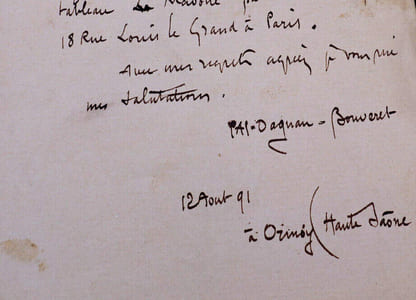 tableau La Madone
18 Rue Louis le Grand à Paris.
Avec mes regrets agréez je vous prie
mes salutations.
PAJ-Dagnan-Bouveret
12 Aout 91
à Ormoy (Haute Saône